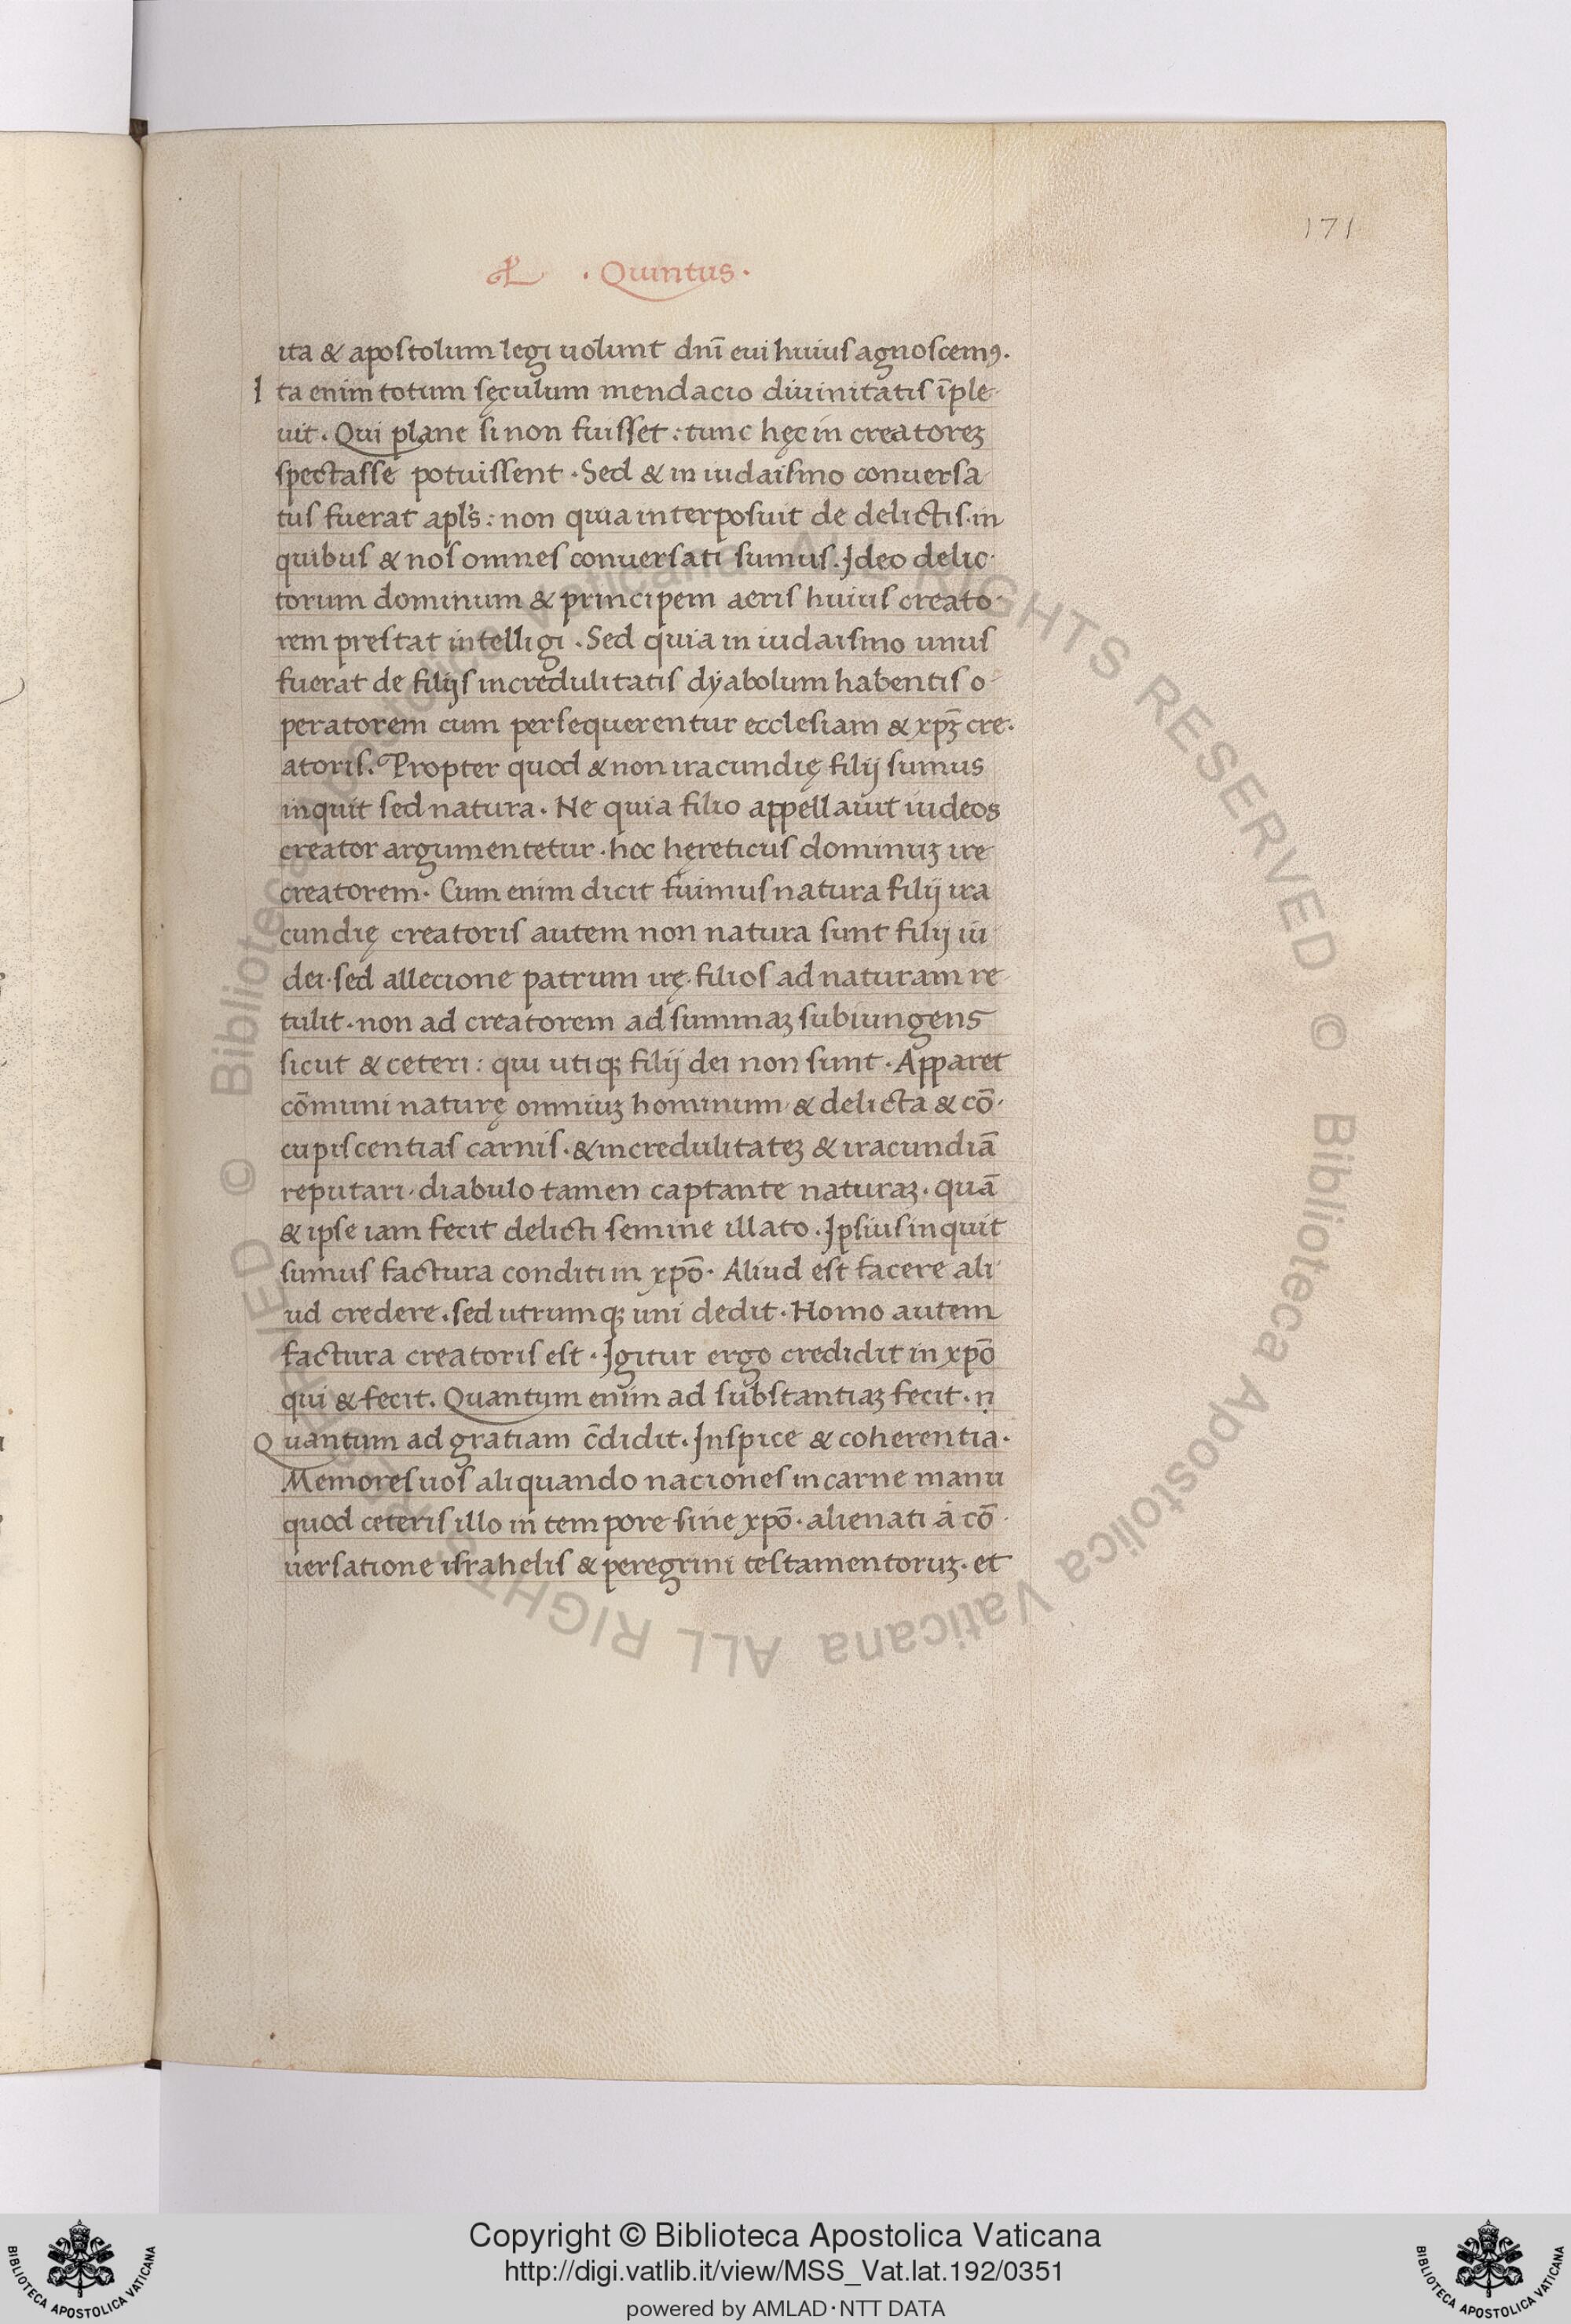 171
· Quintus ·
ita & apostolum legi uolunt dnī eui huius agnoscemꝰ.
Ita enim totum sęculum mendacio diuinitatis īple-
uit. Qui plane si non fuisset: tunc hęc in creatoreʒ
spectasse potuissent. Sed & in iudaismo conuersa
tus fuerat apl's: non quia interposuit de delictis. in
quibus & nos omnes conuersati sumus. Ideo delic-
torum dominum & principem aeris huius creato-
rem prestat intelligi. Sed quia in iudaismo unus
fuerat de filijs incredulitatis dyabolum habentis o-
peratorem cum persequerentur ecclesiam & xp̄ʒ cre-
atoris. Propter quod & non iracundię filij sumus
inquit sed natura. Ne quia filio appellauit iudeos
creator argumentetur. hoc hęreticus dominuʒ ire
creatorem. Cum enim dicit fuimus natura filij ira
cundię creatoris autem non natura sunt filij iu
dei. sed allecione patrum irę. filios ad naturam re
tulit. non ad creatorem ad summaʒ subiungens
sicut & ceteri: qui utiqꝫ filij dei non sunt. Apparet
cōmuni naturę omniuʒ hominum & delicta & cō-
cupiscentias carnis. & incredulitateʒ & iracundiā
reputari. diabulo tamen captante naturaʒ. quā
& ipse iam fecit delicti semine illato. Ipsius inquit
sumus factura conditi in xpō. Aliud est facere ali
ud credere. sed utrumqꝫ uni dedit. Homo autem
factura creatoris est. Igitur ergo credidit in xpō
qui & fecit. Quantum enim ad substantiaʒ fecit. ṇ
Quantum ad gratiam c̄didit. Inspice & coherentia.
Memores uos aliquando naciones in carne manu
quod ceteris illo in tempore sine xpō. alienati á cō-
uersatione israhelis & peregrini testamentoruʒ. et
© Biblioteca Apostolica Vaticana ALL RIGHTS RESERVED © Biblioteca Apostolica Vaticana ALL RIGHTS RESERVED
Copyright © Biblioteca Apostolica Vaticana
http://digi.vatlib.it/view/MSS_Vat.lat.192/0351
powered by AMLAD·NTT DATA
BIBLIOTECA APOSTOLICA VATICANA
BIBLIOTECA APOSTOLICA VATICANA